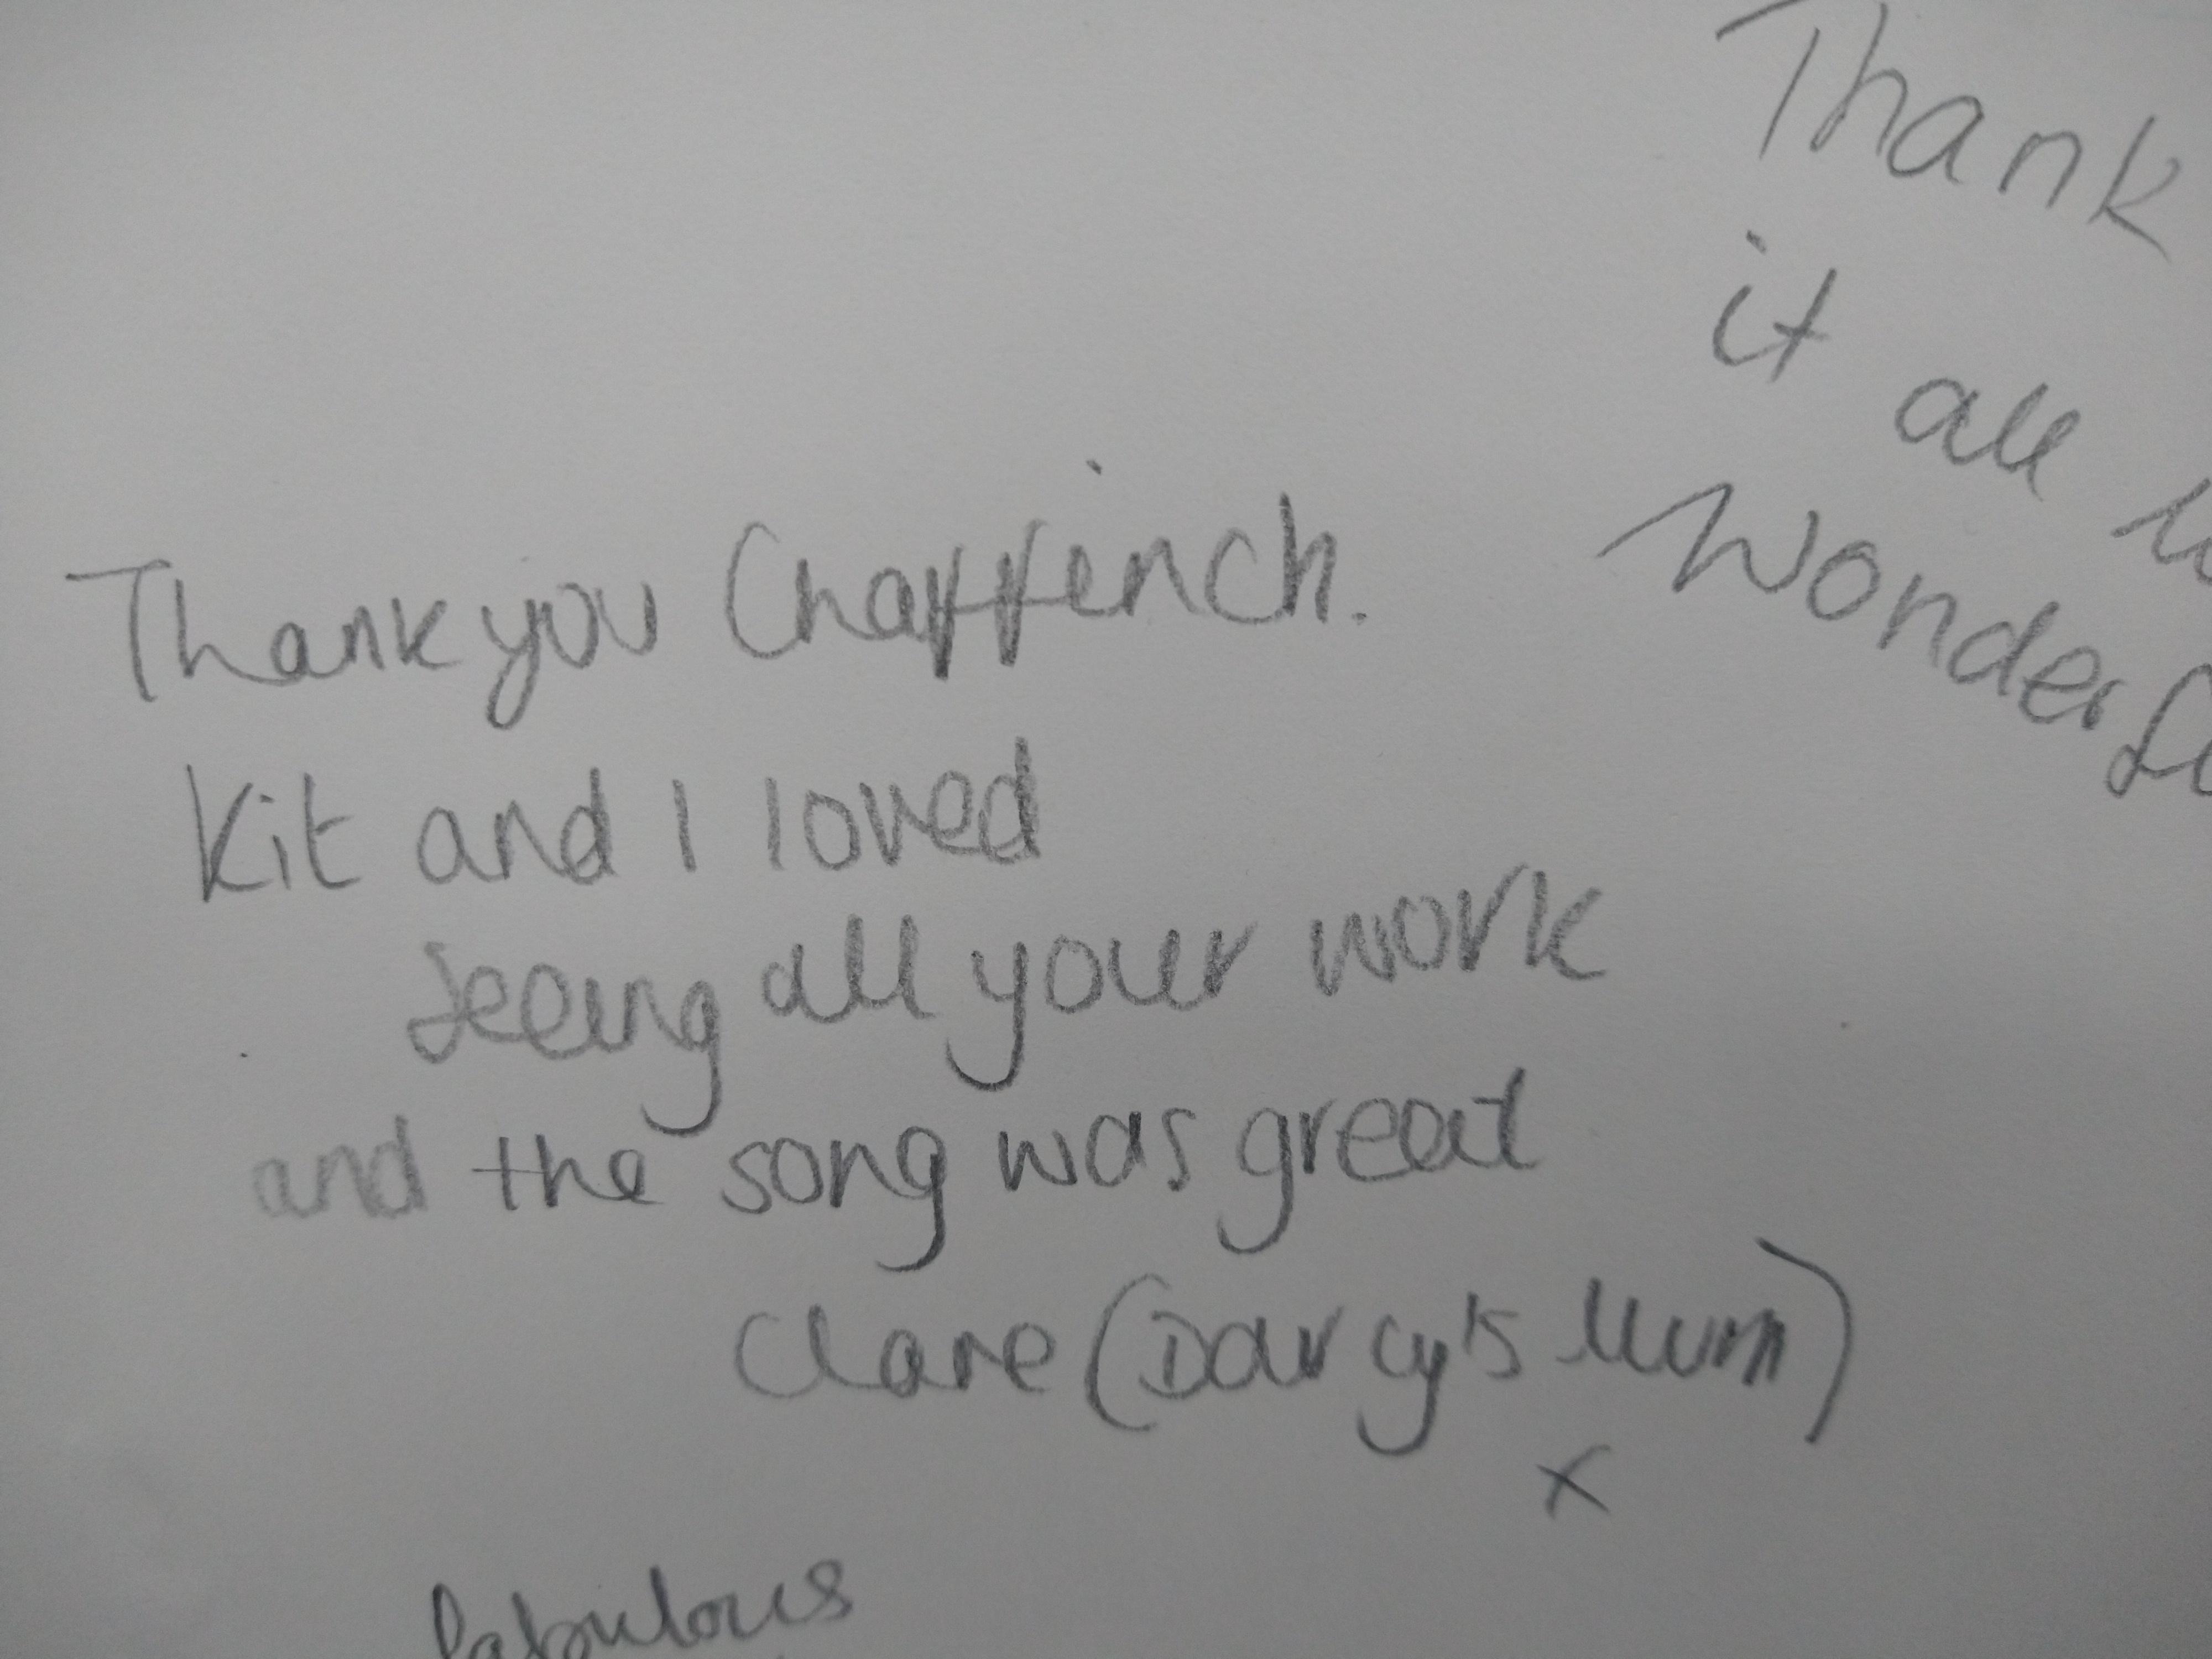 Thank
it all
Wonderf
Thank you Chaffinch.
Kit and I loved
seeing all your work
and the song was great
Clare (Darcy's Mum)
x
fabulous